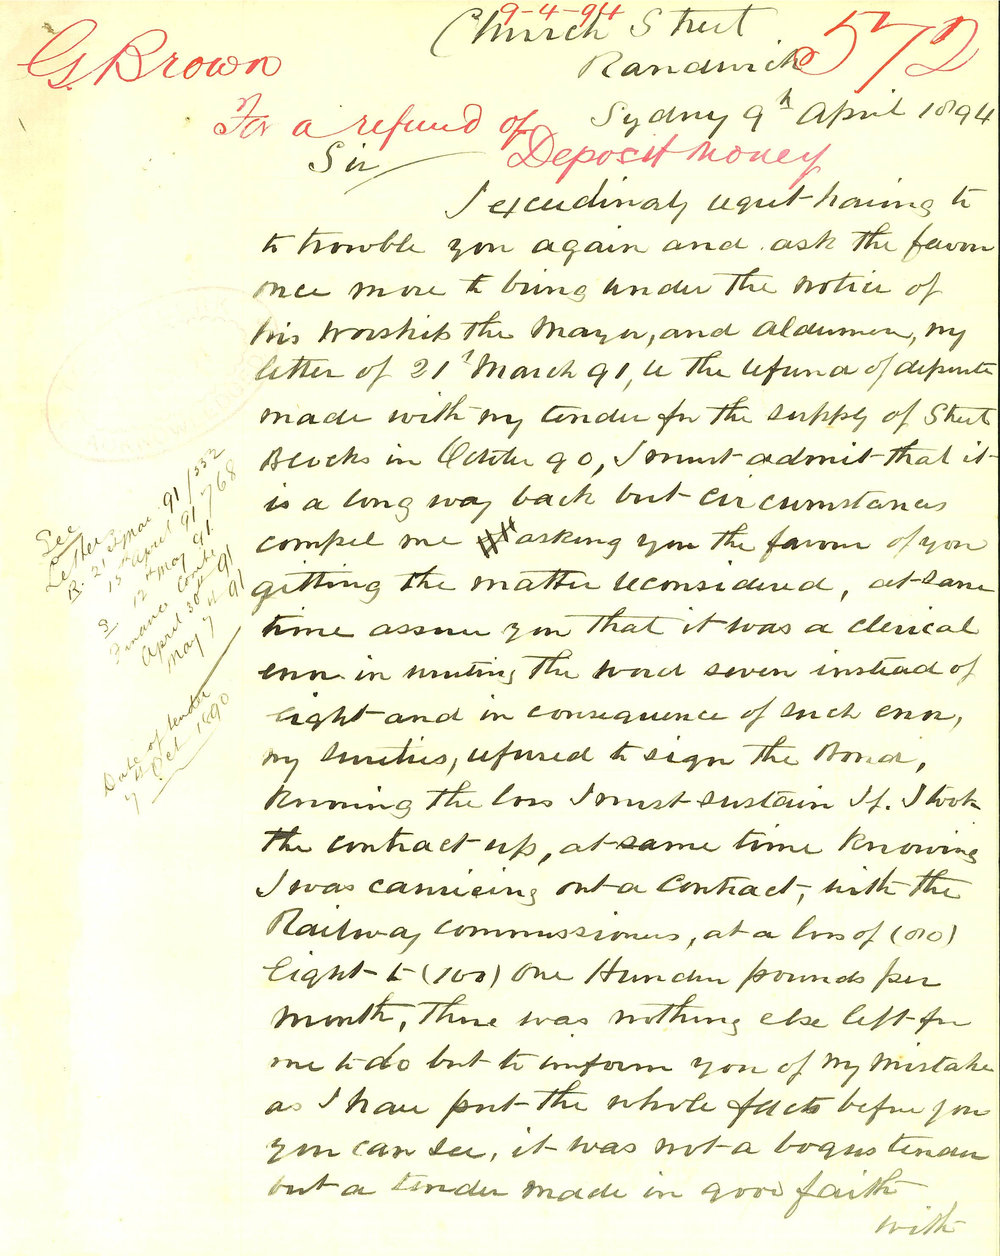 9-4-94
Church Street
G. Brown
Randwick
572
Sydney 9th April 1894
For a refund of
Deposit Money
Sir
I exceedinaly regret having to
to trouble you again and ask the favor
once more to bring under the notice of
his Worship the Mayor, and aldermen, my
letter of 21st March 91, re the refund of deposite
made with my tender for the supply of Street
Blocks in October 90, I must admit that it
is a long way back but circumstances
compel me asking you the favour of you
getting the matter reconsidered, at same
time assure you that it was a clerical
error in writing the word seven instead of
Eight and in consequence of such error,
my sureties, refused to sign the Bond,
Knowing the loss I must sustain If I took
the contract up, at same time Knowing
I was carrieing out a contract, with the
Railway commissioners, at a loss of (80)
Eight to (100) One Hunder pounds per
Month, there was nothing else left for
me to do but to inform you of my mistake
as I have put the whole facts before you
you can see, it was not a bogus tender
but a tender made in good faith
with
See
Letters
R: 21st Mar. 91/552
15th April 91 768
S 12th May 91
Finance Comte
April 30th 91
May 7th 91
Date of tender
7th Oct 1890